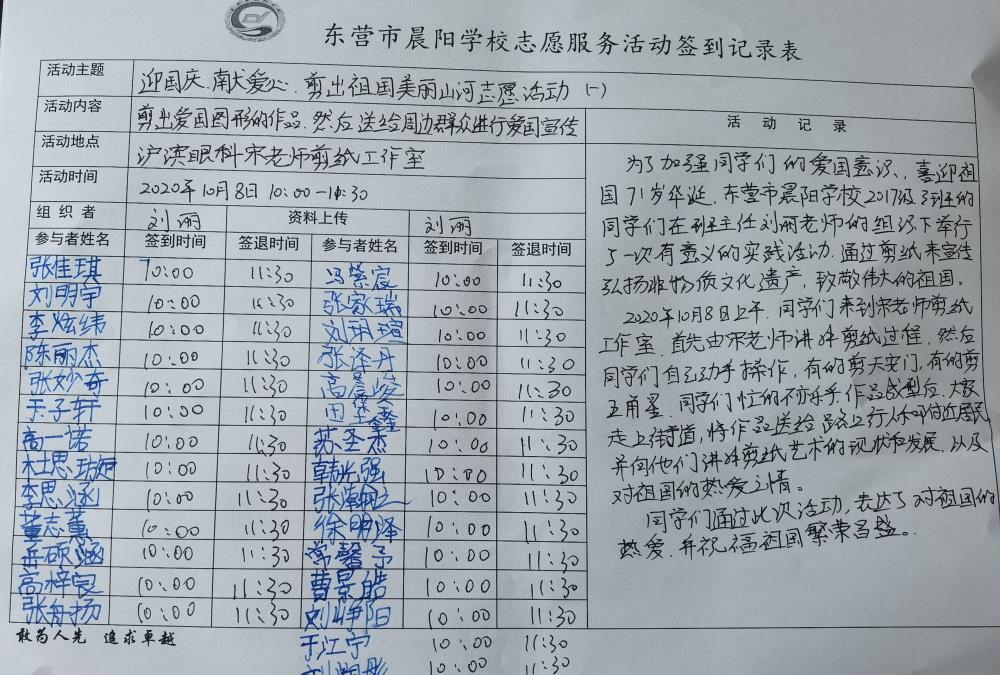 东营市晨阳学校志愿服务活动签到记录表
活动主题 迎国庆.献爱心.剪出祖国美丽山河志愿活动(一)
活动内容 剪出爱国图形的作品.然后送给周边群众进行爱国宣传
活动地点 沪滨眼科宋老师剪纸工作室
活动时间 2020年10月8日 10:00-11:30
组织者 刘丽 资料上传 刘丽
参与者姓名 签到时间 签退时间 参与者姓名 签到时间 签退时间
张佳琪 10:00 11:30 冯紫宸 10:00 11:30
刘明宇 10:00 11:30 张家瑞 10:00 11:30
李炫纬 10:00 11:30 刘玥瑄 10:00 11:30
陈丽杰 10:00 11:30 张泽丹 10:00 11:30
张妙奇 10:00 11:30 10:00 11:30
王子轩 10:00 11:30 10:00 11:30
高一诺 10:00 11:30 苏圣杰 10:00 11:30
10:00 11:30 韩光强 10:00 11:30
李思涵 10:00 11:30 10:00 11:30
董志蕙 10:00 11:30 徐明泽 10:00 11:30
岳硕涵 10:00 11:30 常馨予 10:00 11:30
高梓宸 10:00 11:30 曹景皓 10:00 11:30
张舟扬 10:00 11:30 刘峥阳 10:00 11:30
于江宁 10:00 11:30
10:00 11:30
敢为人先 追求卓越
活动记录
为了加强同学们的爱国意识、喜迎祖
国71岁华诞.东营市晨阳学校2017级3班的
同学们在班主任刘丽老师的组织下举行
了一次有意义的实践活动.通过剪纸来宣传
弘扬非物质文化遗产,致敬伟大的祖国。
2020年10月8日上午.同学们来到宋老师剪纸
工作室.首先由宋老师讲解剪纸过程.然后
同学们自己动手操作,有的剪天安门,有的剪
五角星.同学们忙的不亦乐乎.作品成型后.大家
走上街道,将作品送给路上行人和附近居民
并向他们讲解剪纸艺术的现状和发展.以及
对祖国的热爱之情。
同学们通过此次活动,表达了对祖国的
热爱.并祝福祖国繁荣昌盛。